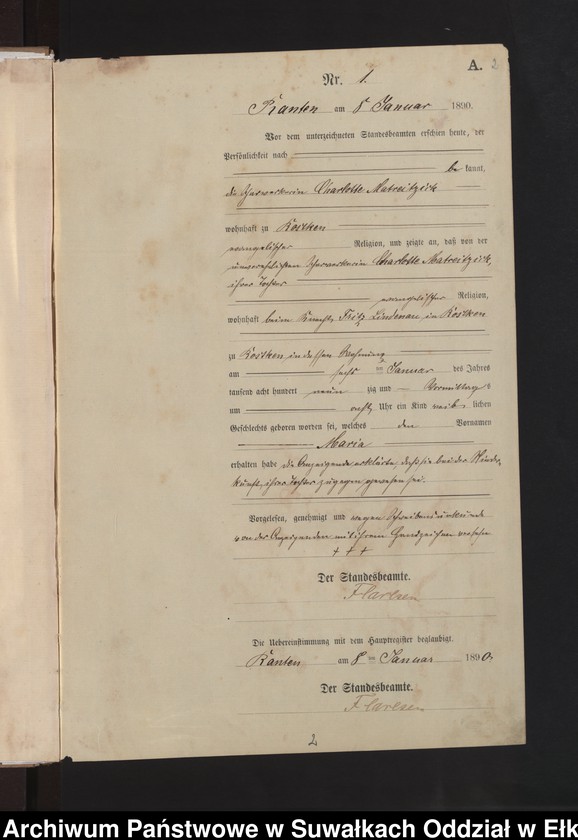 A. 2
Nr. 1.
Kanten am 8 Januar 1890.
Vor dem unterzeichneten Standesbeamten erschien heute, der
Persönlichkeit nach
be kannt,
die Charlotte Matreitzick
wohnhaft zu Kosken
evangelischer Religion, und zeigte an, daß von der
unverehelichten Charlotte Matreitzick,
ihrer Tochter
evangelischer Religion,
wohnhaft beim Knecht Fritz Lindenau in Kosken
zu Kosken in dessen Wohnung
am sechs ten Januar des Jahres
tausend acht hundert neun zig und — Vormittags
um acht Uhr ein Kind weib lichen
Geschlechts geboren worden sei, welches den Vornamen
Maria
erhalten habe die Anzeigende erklärte, daß sie bei der Nieder-
kunft ihrer Tochter zugegen gewesen sei.
Vorgelesen, genehmigt und wegen Schreibensunkunde
von der Anzeigenden mit ihrem Handzeichen versehen
+ + +
Der Standesbeamte.
Die Uebereinstimmung mit dem Hauptregister beglaubigt.
Kanten am 8 ten Januar 1890.
Der Standesbeamte.
2
Archiwum Państwowe w Suwałkach Oddział w Ełk